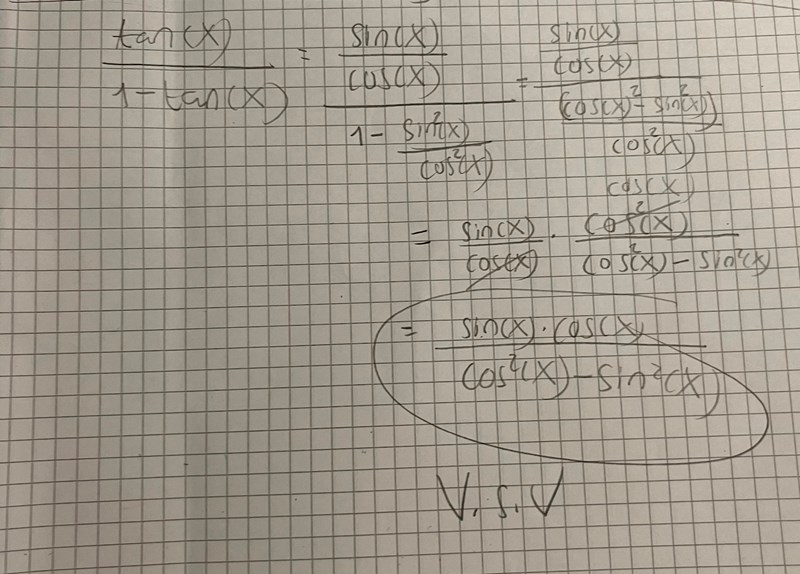 tan(x)/(1-tan(x)) = (sin(x)/cos(x))/(1 - sin²(x)/cos²(x)) = (sin(x)/cos(x))/((cos(x)² - sin²(x))/cos²(x))
= sin(x)/cos(x) · cos²(x)/(cos²(x) - sin²(x))
cos(x)
= sin(x)·cos(x)/(cos²(x) - sin²(x))
V.S.V